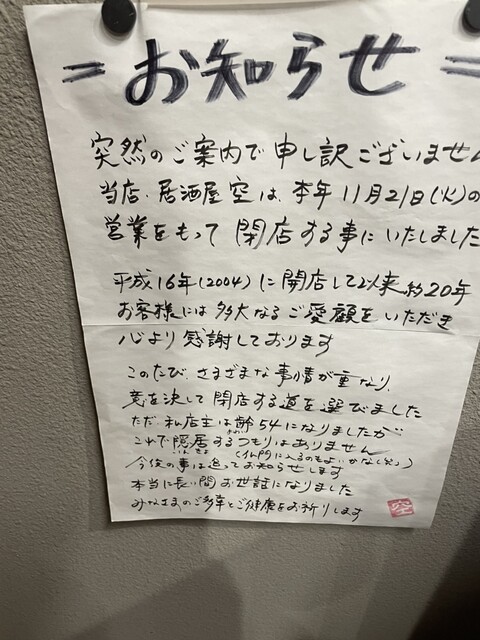 =お知らせ=
突然のご案内で申し訳ございません
当店、居酒屋空は、本年11月21日(火)の
営業をもって閉店する事にいたしました
平成16年(2004)に開店して以来約20年
お客様には多大なるご愛顧をいただき
心より感謝しております
このたび、さまざまな事情が重なり、
意を決して閉店する道を選びました
ただ、私店主は齢54になりましたが
これで隠居するつもりはありません
いんきょ
(仏門に入るのもよいかなし笑)
今後の事は追ってお知らせします
本当に長い間お世話になりました
みなさまのご多幸とご健康をお祈りします
空